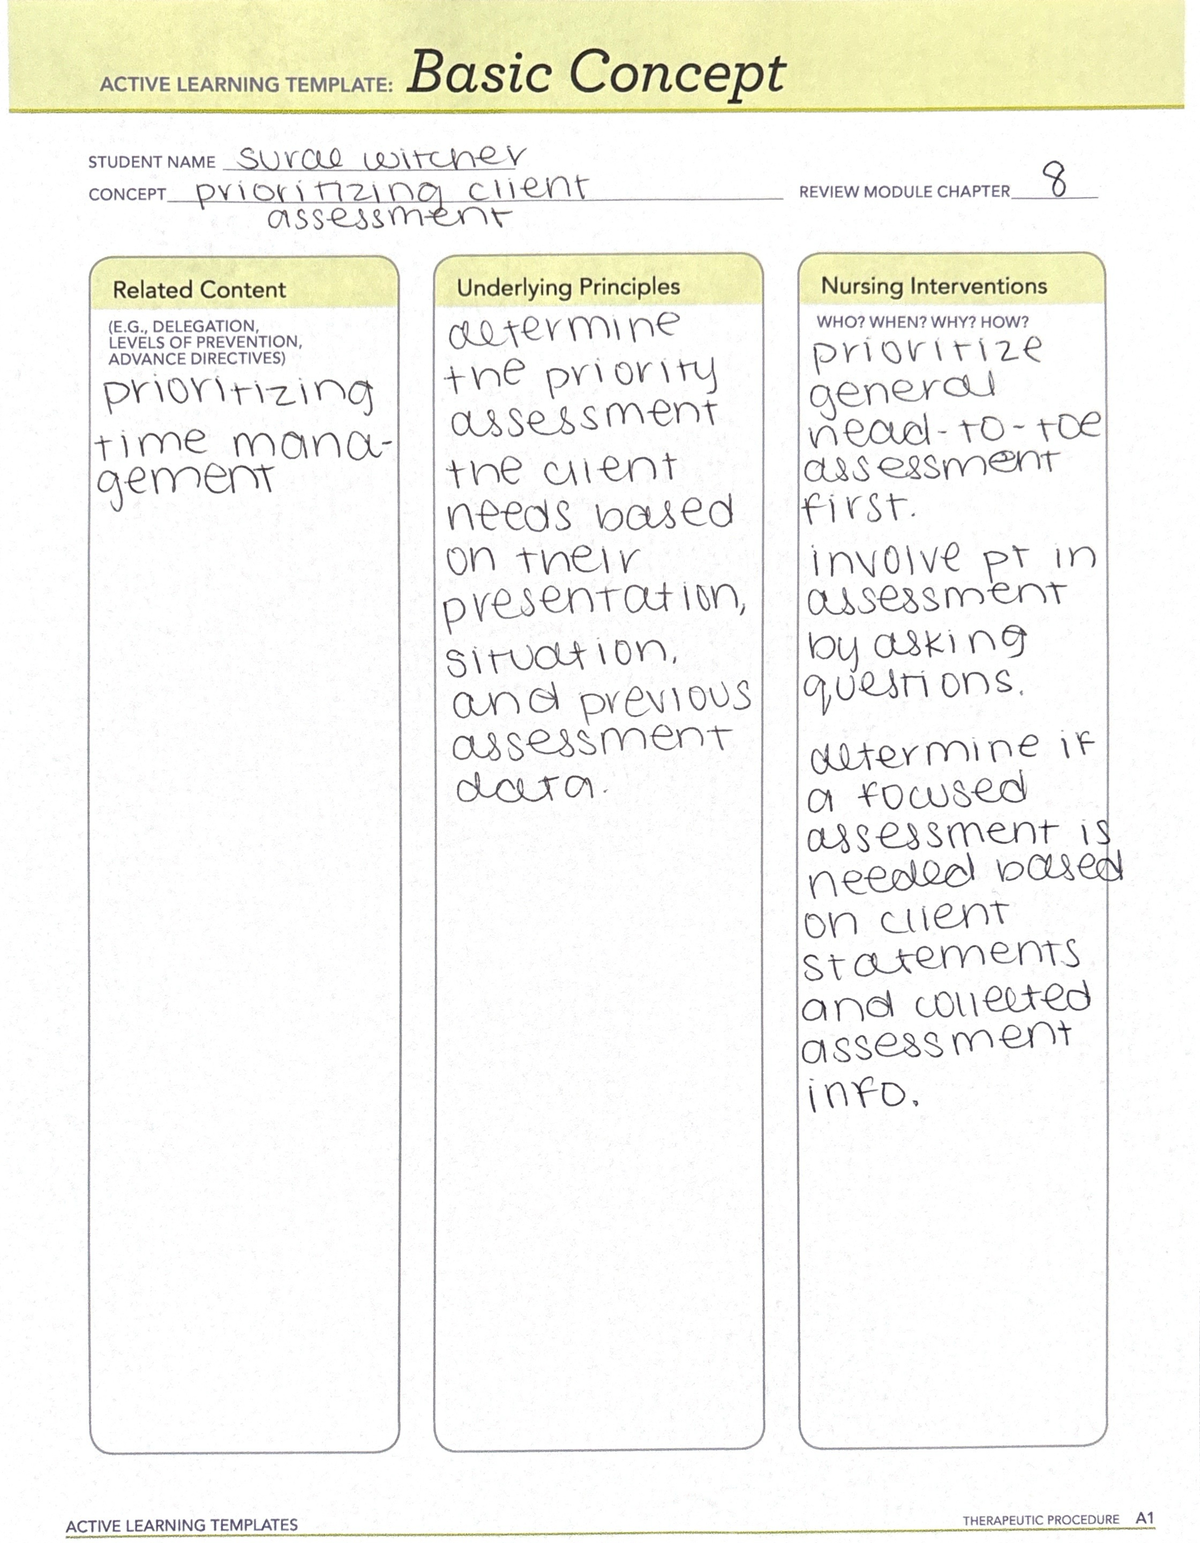 ACTIVE LEARNING TEMPLATE: Basic Concept
STUDENT NAME surae witcher
CONCEPT prioritizing client
assessment
REVIEW MODULE CHAPTER 8
Related Content
(E.G., DELEGATION,
LEVELS OF PREVENTION,
ADVANCE DIRECTIVES)
prioritizing
time mana-
gement
Underlying Principles
determine
the priority
assessment
the client
needs based
on their
presentation,
situation,
and previous
assessment
data.
Nursing Interventions
WHO? WHEN? WHY? HOW?
prioritize
general
head-to-toe
assessment
first.
involve pt in
assessment
by asking
questions.
determine if
a focused
assessment is
needed based
on client
statements
and collected
assessment
info.
ACTIVE LEARNING TEMPLATES
THERAPEUTIC PROCEDURE A1